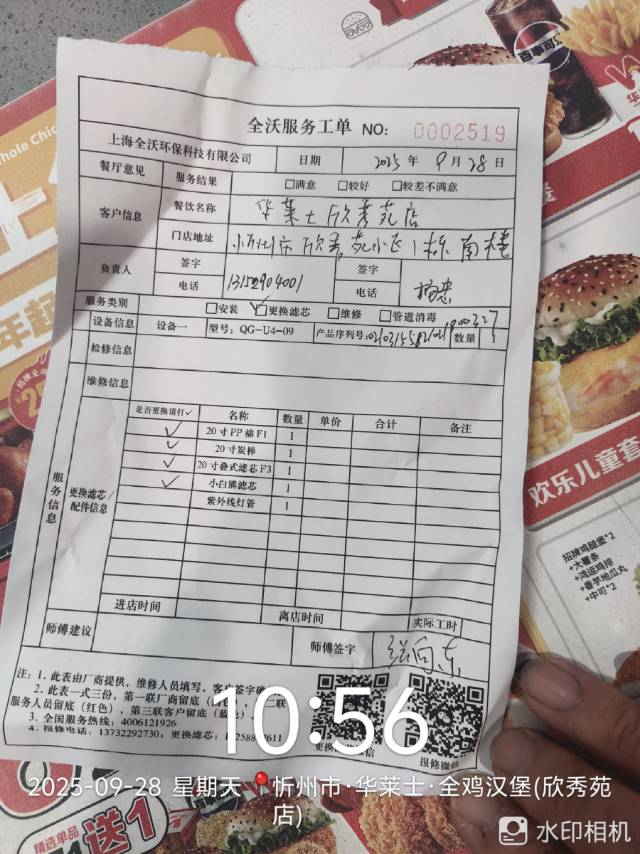 全沃服务工单 NO: 0002519
上海全沃环保科技有限公司 日期 2025年9月28日
餐厅意见 服务结果 □满意 □较好 □较差不满意
客户信息 餐饮名称 华莱士欣秀苑店
门店地址 忻州市欣秀苑小区1栋南楼
负责人 签字 签字
电话 13152904001 电话
服务类别 □安装 ☑更换滤芯 □维修 □管道消毒
设备信息 设备一 型号: QG-U4-09 产品序列号: 数量 1
检修信息
维修信息
服务信息
更换滤芯/配件信息
是否更换请打✓ 名称 数量 单价 合计 备注
✓ 20寸PP棉F1 1
✓ 20寸炭棒 1
✓ 20寸叠式滤芯F3 1
✓ 小白熊滤芯 1
紫外线灯管 1
进店时间 离店时间 实际工时
师傅建议 师傅签字
注: 1. 此表由厂商提供, 维修人员填写, 客户签字确
2. 此表一式三份, 第一联厂商留底 二联
服务人员留底(红色), 第三联客户留底
3. 全国服务热线: 4006121926
4. 报修电话: 13732292730; 更换滤芯:
更换 微信
报修微信
10:56
2025-09-28 星期天 忻州市·华莱士·全鸡汉堡(欣秀苑店)
水印相机
百事可乐
欢乐儿童套
招牌鸡腿堡*2
+大薯条
+鸿运鸡排
+香芋地瓜丸
+中可*2
精选单品
送1